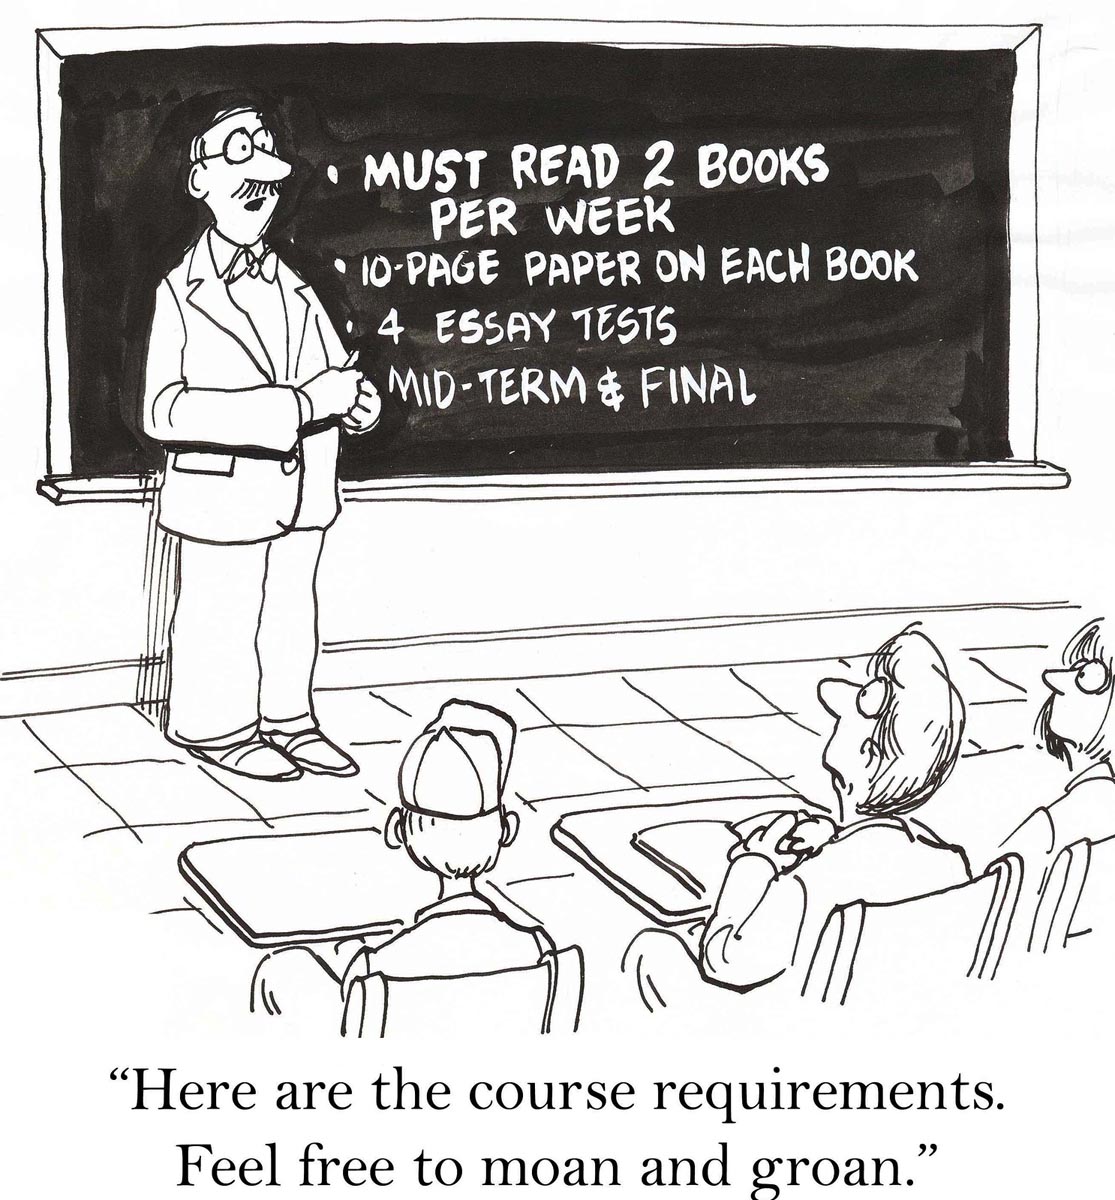 • MUST READ 2 BOOKS
PER WEEK
• 10-PAGE PAPER ON EACH BOOK
• 4 ESSAY TESTS
MID-TERM & FINAL
“Here are the course requirements.
Feel free to moan and groan.”